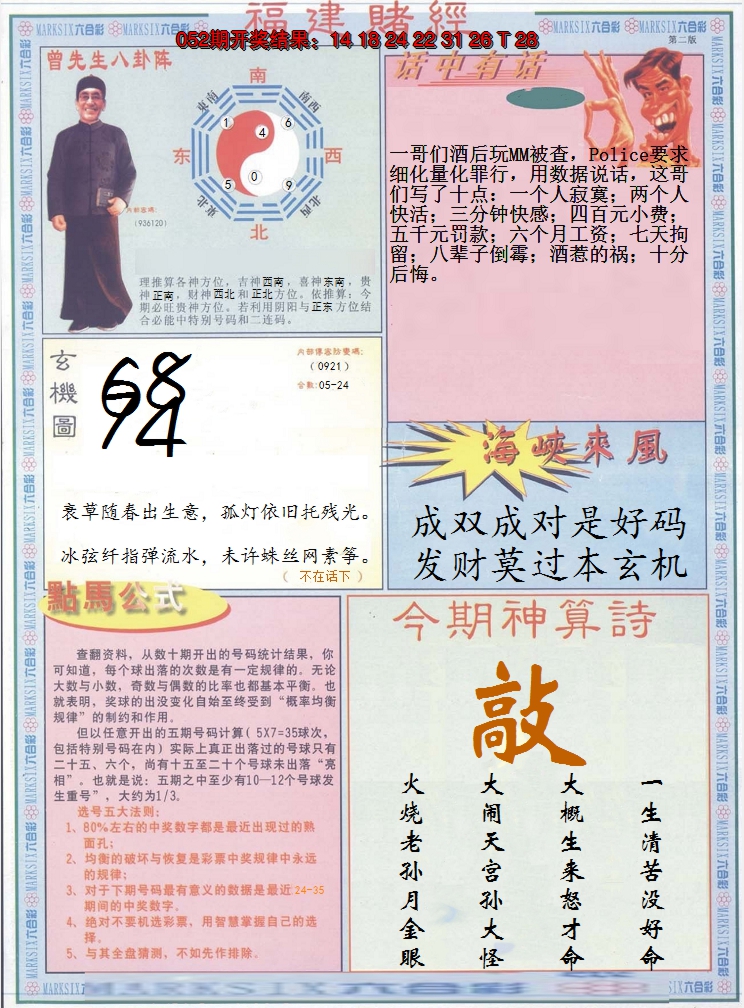 福建賭經
052期开奖结果：14 18 24 22 31 26 T 28
第二版
MARKSIX六合彩
曾先生八卦阵
南
东南
南西
东
西
东北
北西
北
1
4
6
5
0
9
内部密碼:
(936120)
理推算各神方位，吉神西南，喜神东南，贵
神正南，财神西北和正北方位。依推算：今
期必旺贵神方位。若利用阴阳与正东方位结
合必能中特别号码和二连码。
话中有话
一哥们酒后玩MM被查，Police要求
细化量化罪行，用数据说话，这哥
们写了十点：一个人寂寞；两个人
快活；三分钟快感；四百元小费；
五千元罚款；六个月工资；七天拘
留；八辈子倒霉；酒惹的祸；十分
后悔。
玄機圖
(0921)
合数:05-24
衰草随春出生意，孤灯依旧托残光。
冰弦纤指弹流水，未许蛛丝网素筝。
（ 不在话下 ）
海峽來風
成双成对是好码
发财莫过本玄机
點馬公式
查翻资料，从数十期开出的号码统计结果，你
可知道，每个球出落的次数是有一定规律的。无论
大数与小数，奇数与偶数的比率也都基本平衡。也
就表明，奖球的出没变化自始至终受到“概率均衡
规律”的制约和作用。
但以任意开出的五期号码计算( 5X7=35球次，
包括特别号码在内) 实际上真正出落过的号球只有
二十五、六个，尚有十五至二十个号球未出落“亮
相”。也就是说：五期之中至少有10—12个号球发
生重号”，大约为1/3。
选号五大法则：
1、80%左右的中奖数字都是最近出现过的熟
面孔；
2、均衡的破坏与恢复是彩票中奖规律中永远
的规律；
3、对于下期号码最有意义的数据是最近24-35
期间的中奖数字。
4、绝对不要机选彩票，用智慧掌握自己的选
择。
5、与其全盘猜测，不如先作排除。
今期神算詩
敲
一生清苦没好命
大概生来怒才命
大闹天宫孙大怪
火烧老孙月金眼